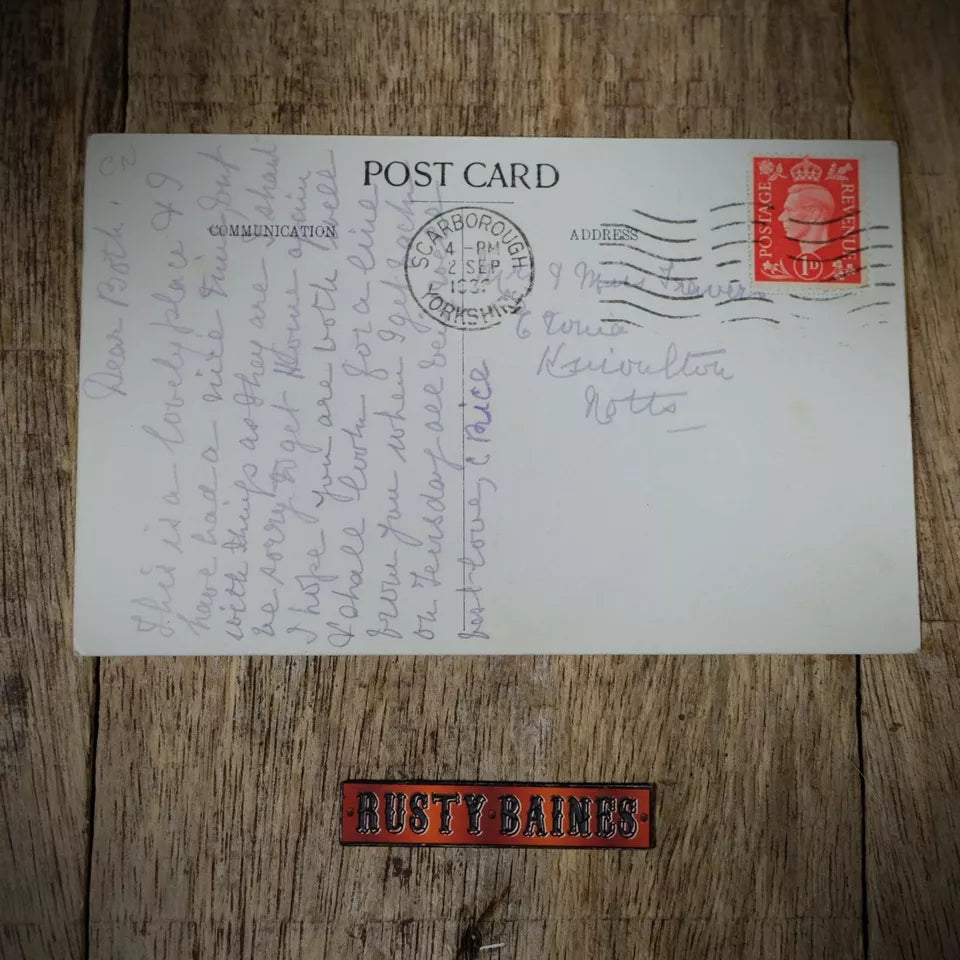 POST CARD
COMMUNICATION
ADDRESS
SCARBOROUGH
4 - PM
2 SEP
YORKSHIRE
POSTAGE
REVENUE
1D
C2
Dear Both.
This is a lovely place & I
have had a nice time but
with things as they are I shant
be sorry to get Home again
I hope you are both well
& shall look for a line
from you when I get back
on Tuesday all being well
best love, C Price
& Miss
Kinoulton
Notts
RUSTY·BAINES